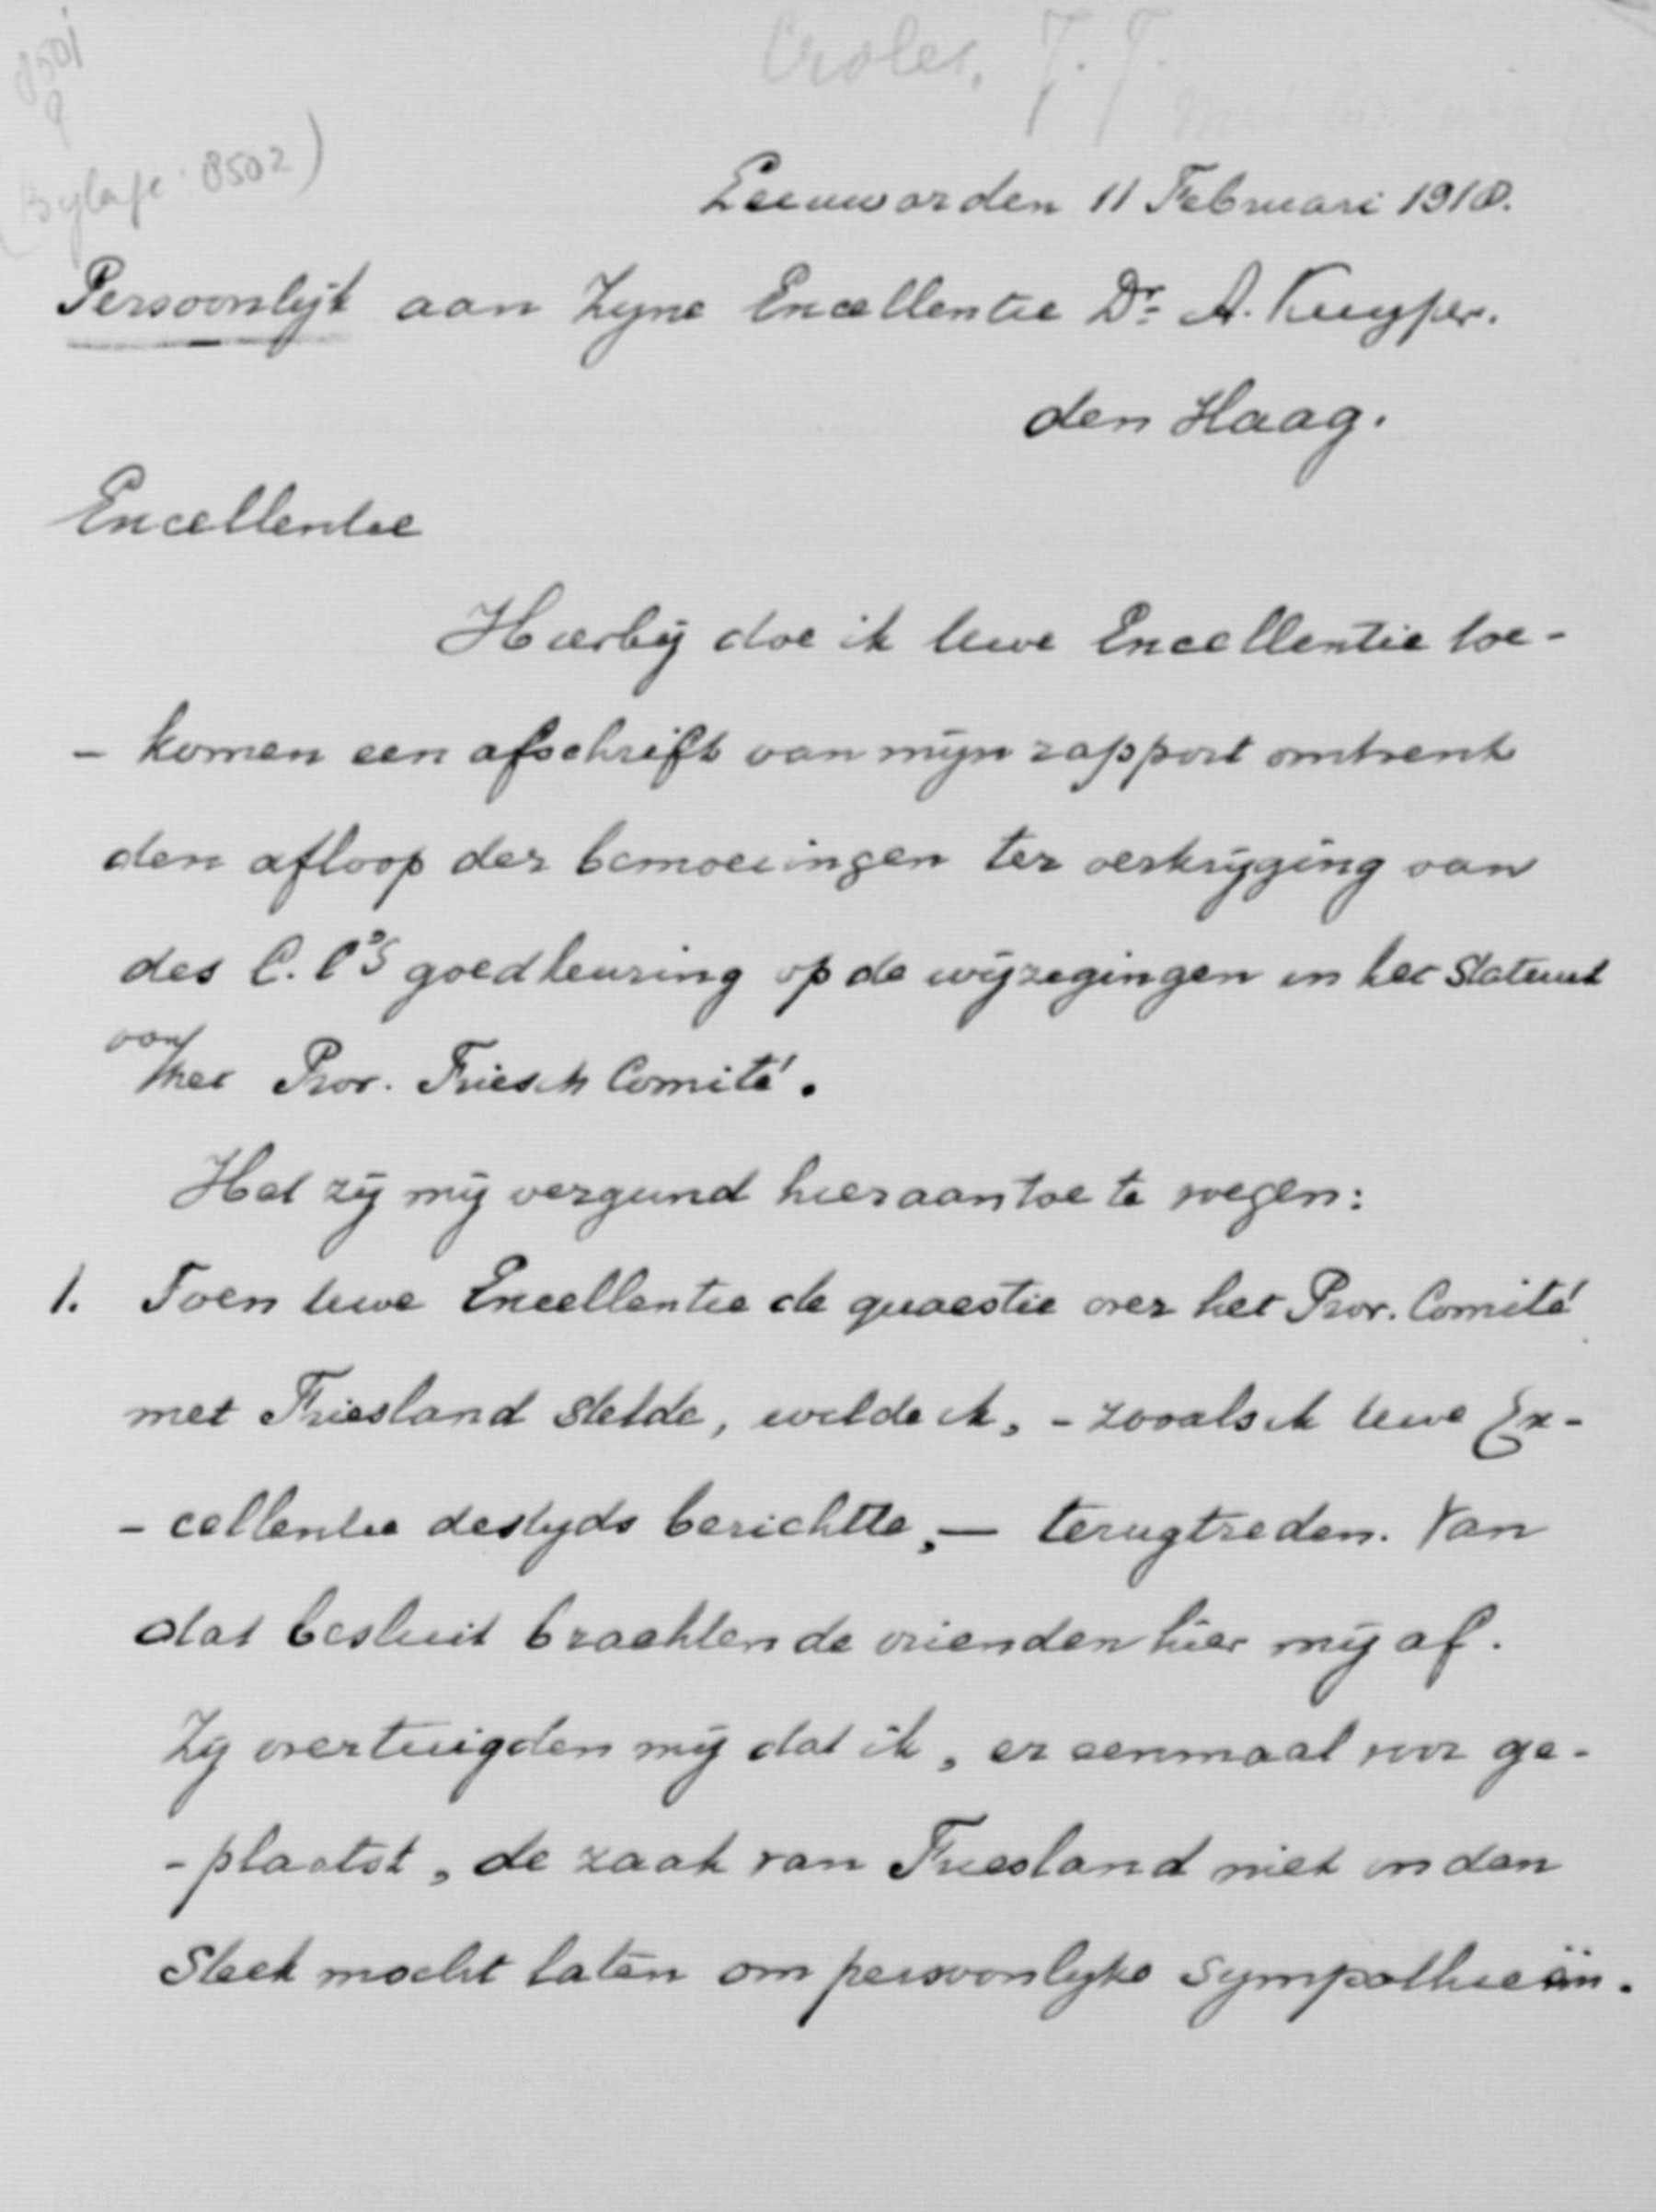 8501
Croles, J. J.
(Bylage: 8502)
Leeuwarden 11 Februari 1918.
Persoonlijk aan Zyne Excellentie Dr. A. Kuyper.
den Haag.
Excellentie
Hierbij doe ik Uwe Excellentie toe-
- komen een afschrift van mijn rapport omtrent
den afloop der bemoeiingen ter verkrijging van
des C. C's goedkeuring op de wijzegingen in het Statuut
van het Prov. Friesch Comité.
Het zij mij vergund hieraan toe te voegen:
1. Toen Uwe Excellentie de quaestie over het Prov. Comité
met Friesland stelde, wilde ik, - zooals ik Uwe Ex-
- cellentie destyds berichtte, — terugtreden. Van
dat besluit brachten de vrienden hier mij af.
Zij overtuigden mij dat ik, er eenmaal voor ge-
- plaatst, de zaak van Friesland niet in den
Steek mocht laten om persoonlyke Sympathieën.